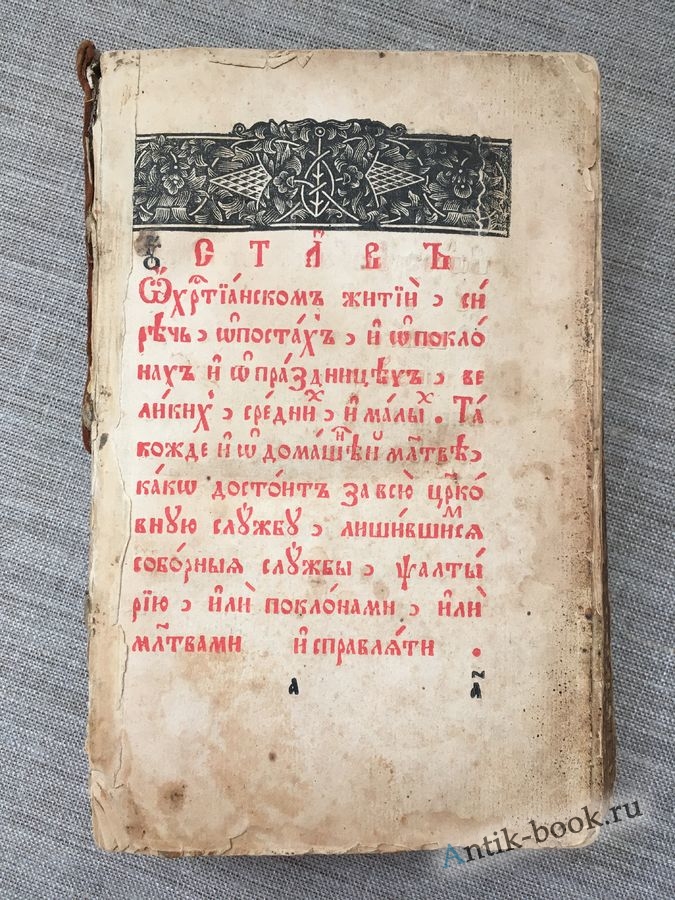 Ꙋ С Т А́ В Ъ
Ѡ҆хрⷭ҇тїа́нскомъ житїѝ , си́
рѣчь , ѡ҆поста́хъ , и҆ ѡ҆покло́
нахъ и҆ ѡ҆пра́здницѣхъ , ве
ли́кихъ , сре́дниⷯ , и҆ ма́лыⷯ . Та́
кожде и҆ ѡ҆ дома́шⷩѣй мл҃твѣ ,
ка́кѡ досто́итъ за всю̀ цр҃ко́
вную слꙋ́жбꙋ , лиши́вшиⷨсѧ
собо́рныѧ слꙋ́жбы , ѱалты́
рїю , и҆лѝ покло́нами , и҆лѝ
мл҃твами и҆справлѧ́ти .
а҆ а҃
Antik-book.ru